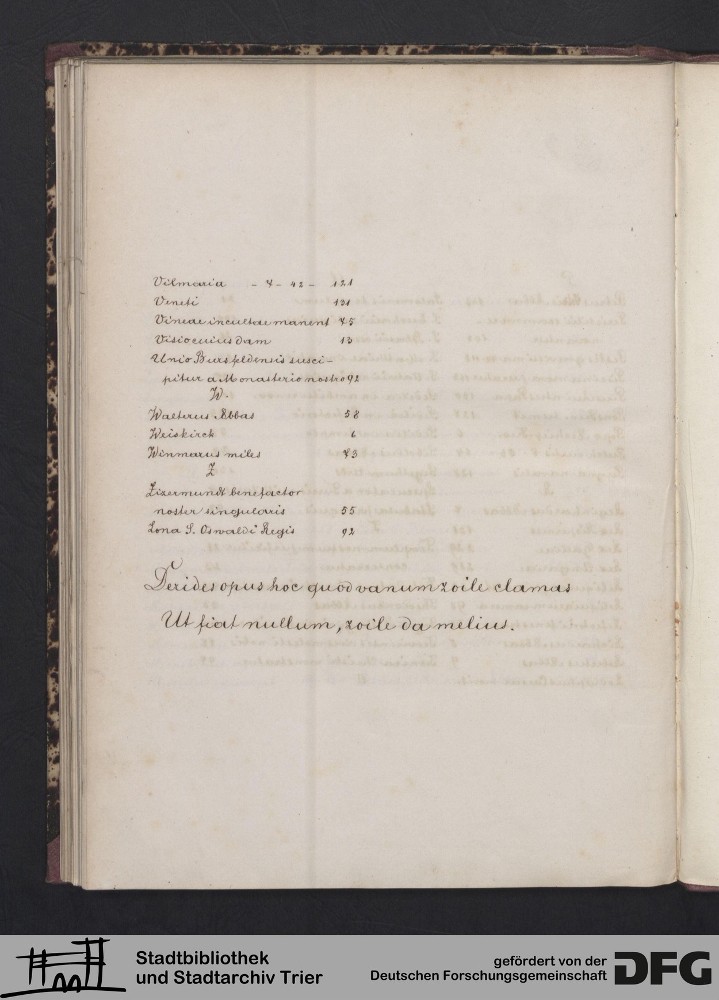 Vilmaria - 7 - 42 - 121
Veneti 121
Vineae incultae manent 75
Visio cuiusdam 13
Unio Bursfeldensis susci-
pitur a Monasterio nostro 92
W.
Walterus Abbas 58
Weiskirch 6
Winmarus miles 73
Z
Zizermundt benefactor
noster singularis 55
Zona S. Oswaldi Regis 92
Derides opus hoc quod vanum zoile clamas
Ut fiat nullum, zoile da melius.
Stadtbibliothek
und Stadtarchiv Trier
gefördert von der
Deutschen Forschungsgemeinschaft
DFG